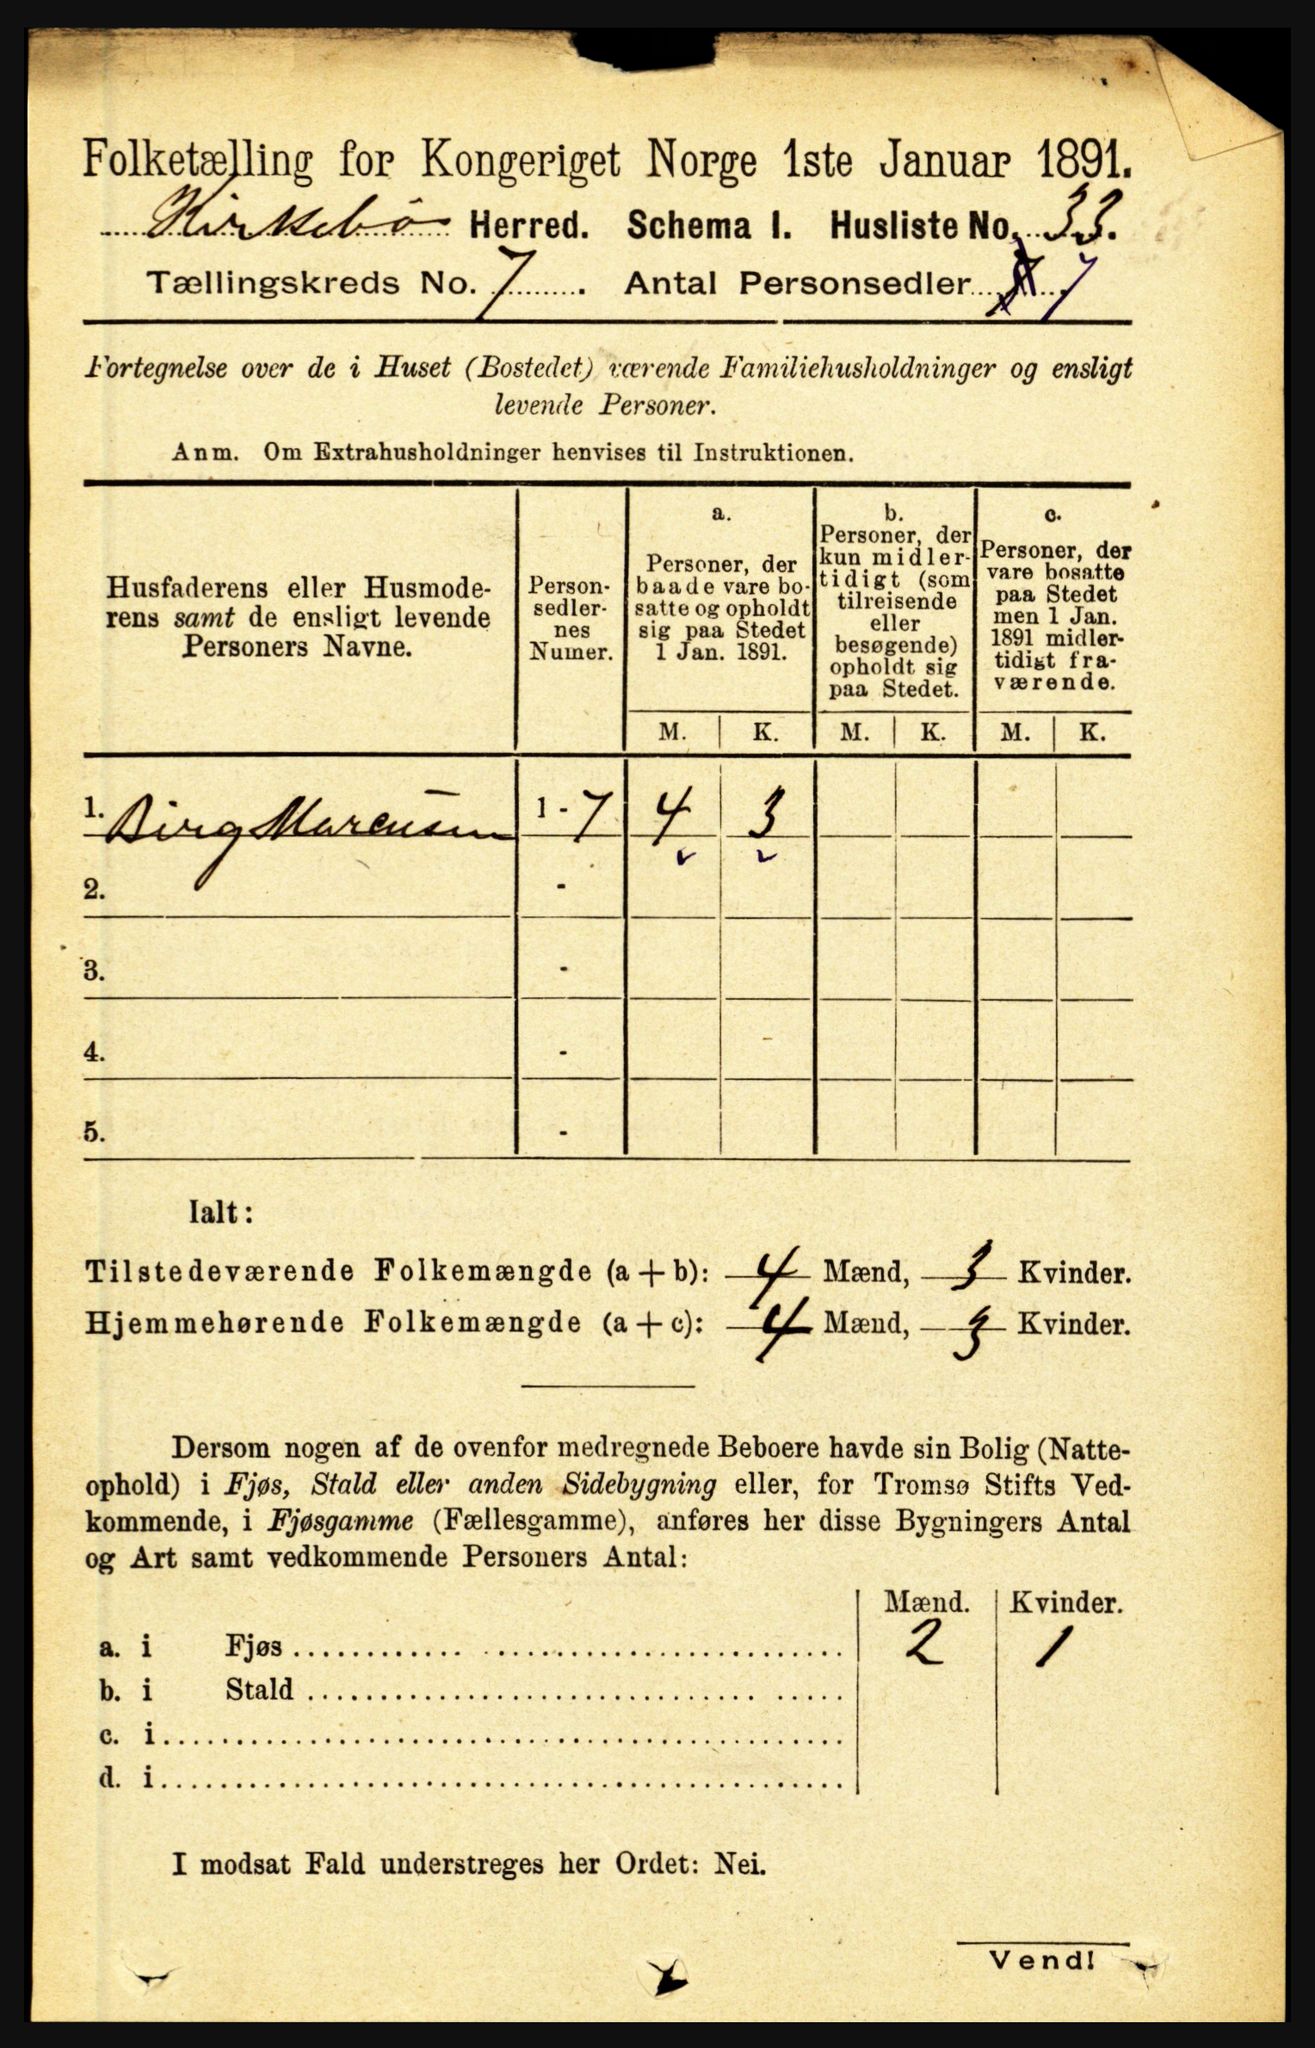 Folketælling for Kongeriget Norge 1ste Januar 1891.
Kirkebø Herred. Schema I. Husliste No. 33.
Tællingskreds No. 7. Antal Personsedler 7
Fortegnelse over de i Huset (Bostedet) værende Familiehusholdninger og ensligt
levende Personer.
Anm. Om Extrahusholdninger henvises til Instruktionen.
Husfaderens eller Husmode-
rens samt de ensligt levende
Personers Navne.
Person-
sedler-
nes
Numer.
a.
Personer, der
baade vare bo-
satte og opholdt
sig paa Stedet
1 Jan. 1891.
b.
Personer, der
kun midler-
tidigt (som
tilreisende
eller
besøgende)
opholdt sig
paa Stedet.
c.
Personer, der
vare bosatte
paa Stedet
men 1 Jan.
1891 midler-
tidigt fra-
værende.
M. K. M. K. M. K.
1. Birg Marcusen 1 - 7 4 3
2. -
3. -
4. -
5. -
Ialt:
Tilstedeværende Folkemængde (a + b): 4 Mænd, 3 Kvinder.
Hjemmehørende Folkemængde (a + c): 4 Mænd, 3 Kvinder.
Dersom nogen af de ovenfor medregnede Beboere havde sin Bolig (Natte-
ophold) i Fjøs, Stald eller anden Sidebygning eller, for Tromsø Stifts Ved-
kommende, i Fjøsgamme (Fællesgamme), anføres her disse Bygningers Antal
og Art samt vedkommende Personers Antal:
Mænd. Kvinder.
a. i Fjøs 2 1
b. i Stald
c. i
d. i
I modsat Fald understreges her Ordet: Nei.
Vend!